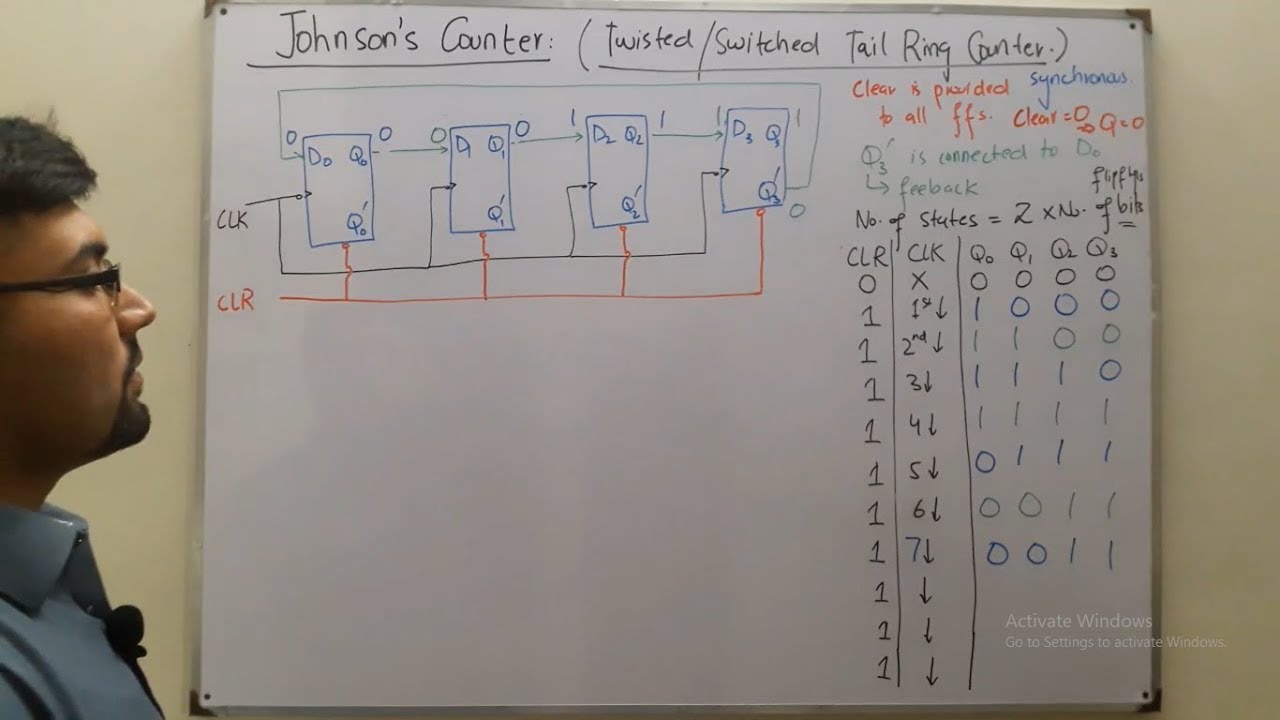 Johnson's Counter: (Twisted/Switched Tail Ring Counter.)
Clear is provided synchronous.
to all ffs. Clear=0 ⇒ Q=0
Q3' is connected to D0
↳ feeback
flipflops
No. of states = 2 × No. of bits
0 0 0 0 1 1 1 1
D0 Q0 D1 Q1 D2 Q2 D3 Q3
Q0' Q1' Q2' Q3'
0
CLK
CLR
CLR CLK Q0 Q1 Q2 Q3
0 X 0 0 0 0
1 1st↓ 1 0 0 0
1 2nd↓ 1 1 0 0
1 3↓ 1 1 1 0
1 4↓ 1 1 1 1
1 5↓ 0 1 1 1
1 6↓ 0 0 1 1
1 7↓ 0 0 1 1
1 ↓
1 ↓
1 ↓
Activate Windows
Go to Settings to activate Windows.